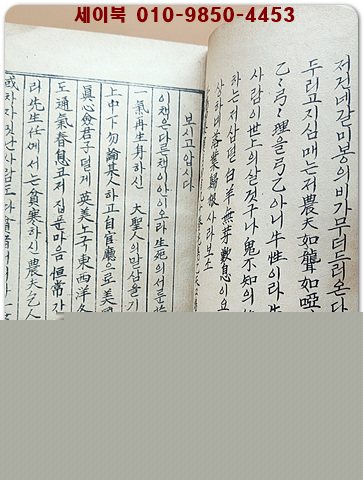 세이북 010-9850-4453
저건네갈미봉의비가무더드러온다
두러고지심매는저農夫如聾如啞
乙乙弓弓理을弓乙아니牛性이라牛
사람이世上의살것구나鬼不知의
하는저삽번白羊無芽數息이요
상하네落葉歸根사라보소
보시고압시다
이채은다른채이안이오라生死의서룬
一氣再生身하신 大聖人의말삼을기
上中下勿論某人하고自官廳으로美
眞心僉君子덜게英美노국東西洋各
도通氣春息코저집문마음恒常간
러先生任에서는貧寒하시는農夫乞人